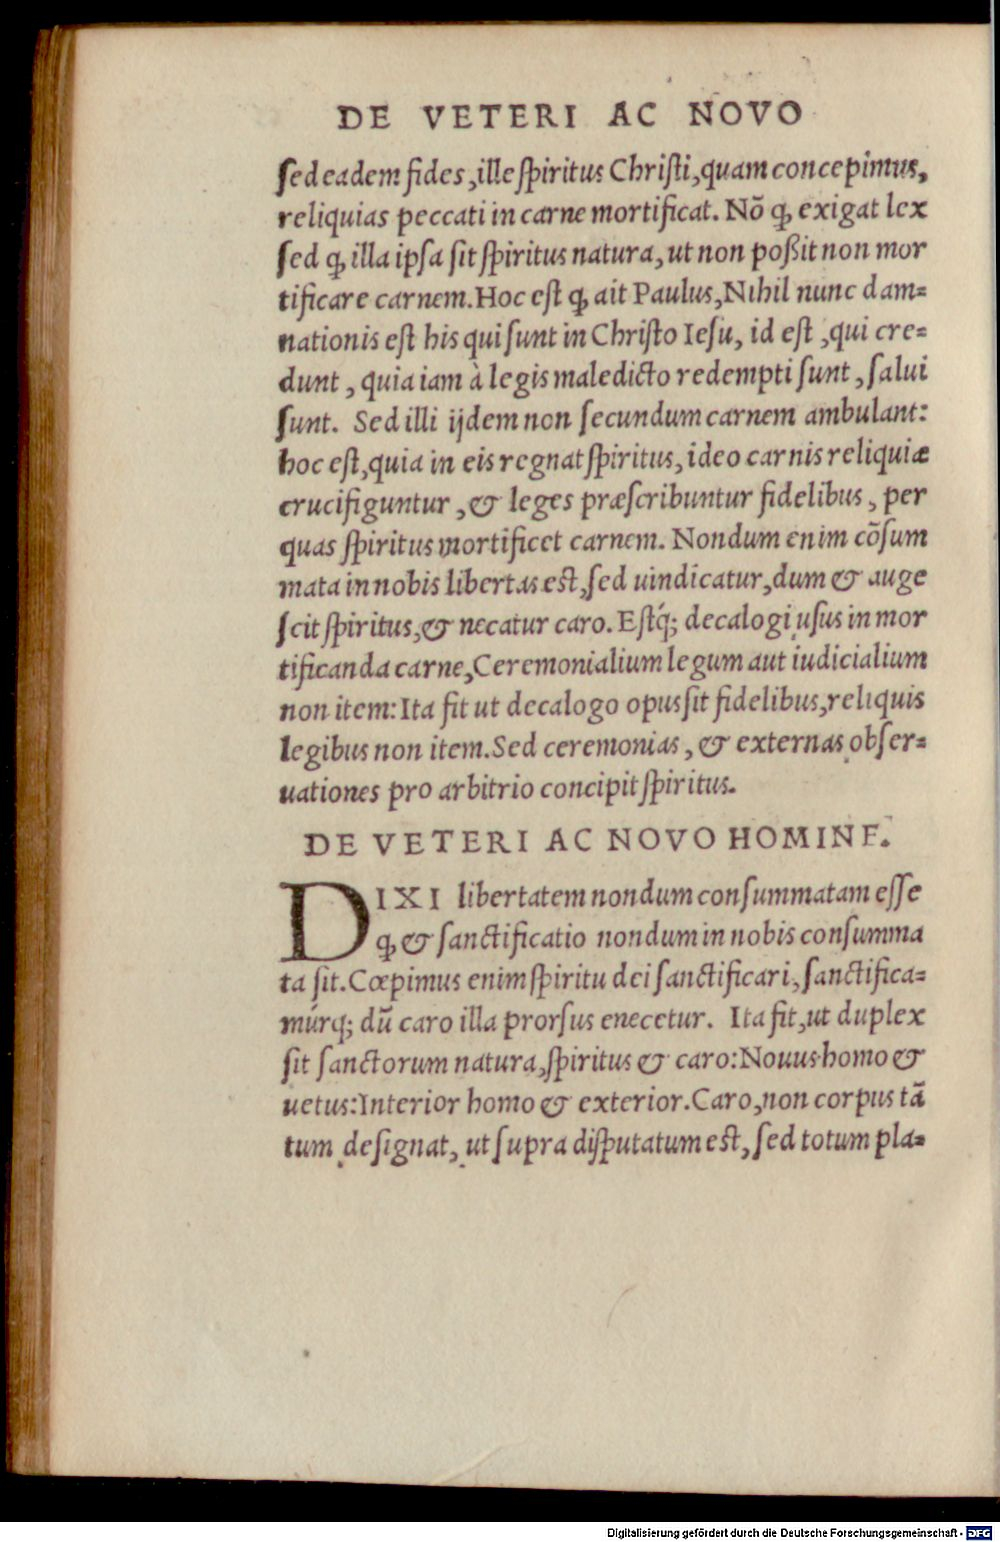 DE VETERI AC NOVO
ſed eadem fides, ille ſpiritus Chriſti, quam concepimus,
reliquias peccati in carne mortificat. Nõ ꝙ exigat lex
ſed ꝙ illa ipſa ſit ſpiritus natura, ut non poßit non mor
tificare carnem. Hoc eſt ꝙ ait Paulus, Nihil nunc dam=
nationis eſt his qui ſunt in Chriſto Ieſu, id eſt, qui cre=
dunt, quia iam à legis maledicto redempti ſunt, ſalui
ſunt. Sed illi ijdem non ſecundum carnem ambulant:
hoc eſt, quia in eis regnat ſpiritus, ideo carnis reliquiæ
crucifiguntur, & leges præſcribuntur fidelibus, per
quas ſpiritus mortificet carnem. Nondum enim cõſum
mata in nobis libertas eſt, ſed uindicatur, dum & auge
ſcit ſpiritus, & necatur caro. Eſtq́; decalogi uſus in mor
tificanda carne, Ceremonialium legum aut iudicialium
non item: Ita fit ut decalogo opus ſit fidelibus, reliquis
legibus non item. Sed ceremonias, & externas obſer=
uationes pro arbitrio concipit ſpiritus.
DE VETERI AC NOVO HOMINE.
DIXI libertatem nondum conſummatam eſſe
ꝙ & ſanctificatio nondum in nobis conſumma
ta ſit. Cœpimus enim ſpiritu dei ſanctificari, ſanctifica=
múrq; dũ caro illa prorſus enecetur. Ita fit, ut duplex
ſit ſanctorum natura, ſpiritus & caro: Nouus homo &
uetus: Interior homo & exterior. Caro, non corpus tã
tum deſignat, ut ſupra diſputatum eſt, ſed totum pla=
Digitalisierung gefördert durch die Deutsche Forschungsgemeinschaft - DFG